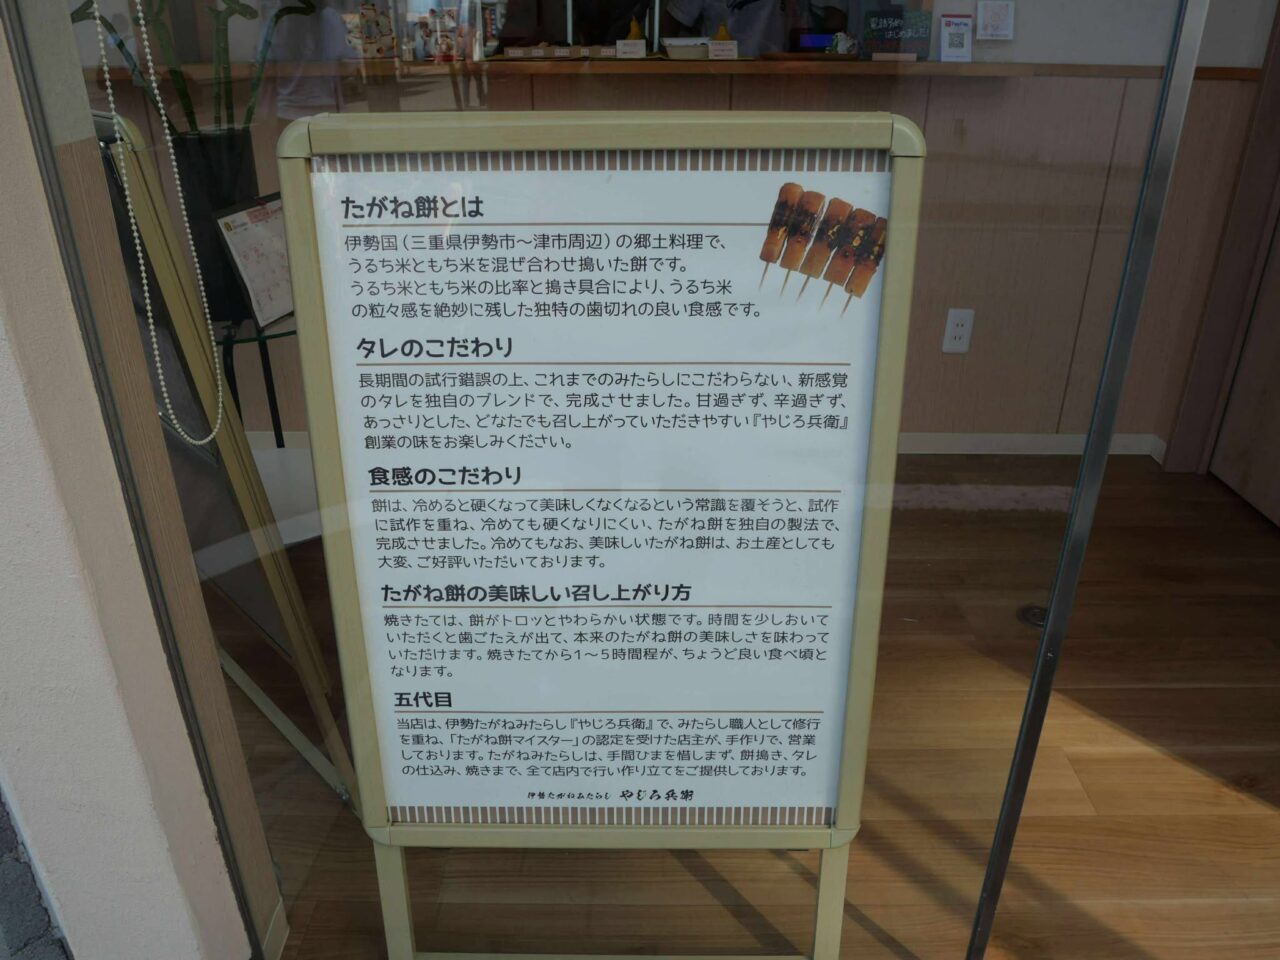 たがね餅とは
伊勢国（三重県伊勢市～津市周辺）の郷土料理で、
うるち米ともち米を混ぜ合わせ搗いた餅です。
うるち米ともち米の比率と搗き具合により、うるち米
の粒々感を絶妙に残した独特の歯切れの良い食感です。
タレのこだわり
長期間の試行錯誤の上、これまでのみたらしにこだわらない、新感覚
のタレを独自のブレンドで、完成させました。甘過ぎず、辛過ぎず、
あっさりとした、どなたでも召し上がっていただきやすい『やじろ兵衛』
創業の味をお楽しみください。
食感のこだわり
餅は、冷めると硬くなって美味しくなくなるという常識を覆そうと、試作
に試作を重ね、冷めても硬くなりにくい、たがね餅を独自の製法で、
完成させました。冷めてもなお、美味しいたがね餅は、お土産としても
大変、ご好評いただいております。
たがね餅の美味しい召し上がり方
焼きたては、餅がトロッとやわらかい状態です。時間を少しおいて
いただくと歯ごたえが出て、本来のたがね餅の美味しさを味わって
いただけます。焼きたてから1～5時間程が、ちょうど良い食べ頃と
なります。
五代目
当店は、伊勢たがねみたらし『やじろ兵衛』で、みたらし職人として修行
を重ね、「たがね餅マイスター」の認定を受けた店主が、手作りで、営業
しております。たがねみたらしは、手間ひまを惜しまず、餅搗き、タレ
の仕込み、焼きまで、全て店内で行い作り立てをご提供しております。
伊勢たがねみたらし やじろ兵衛
電話予約
はじめました!
PayPay